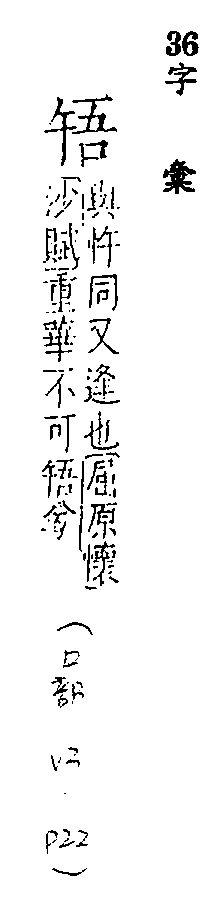 36字彙
啎
與忤同又逢也屈原懷
沙賦重華不可啎兮
(口部 V3. P22)